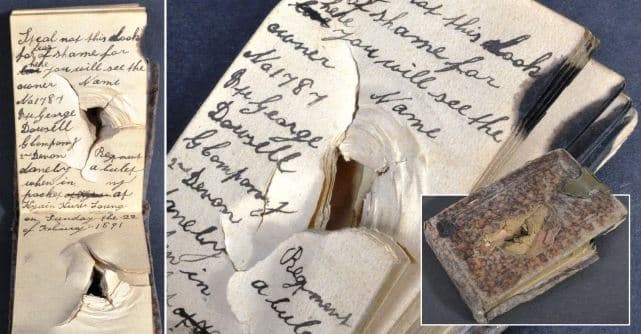 Steal not this book
for fear of shame for
here you will see the
owner Name
No 1787
Pte George
Dowsell
G Compony
2nd Devon Regment
by a bulet
when in my
pocket at
on Sunday the 22
of Febuary 1891
not this book
of shame for
here you will see the
owner Name
No 1787
Pte George
Dowsell
G Compony
2nd Devon
by Regment
in a bulet